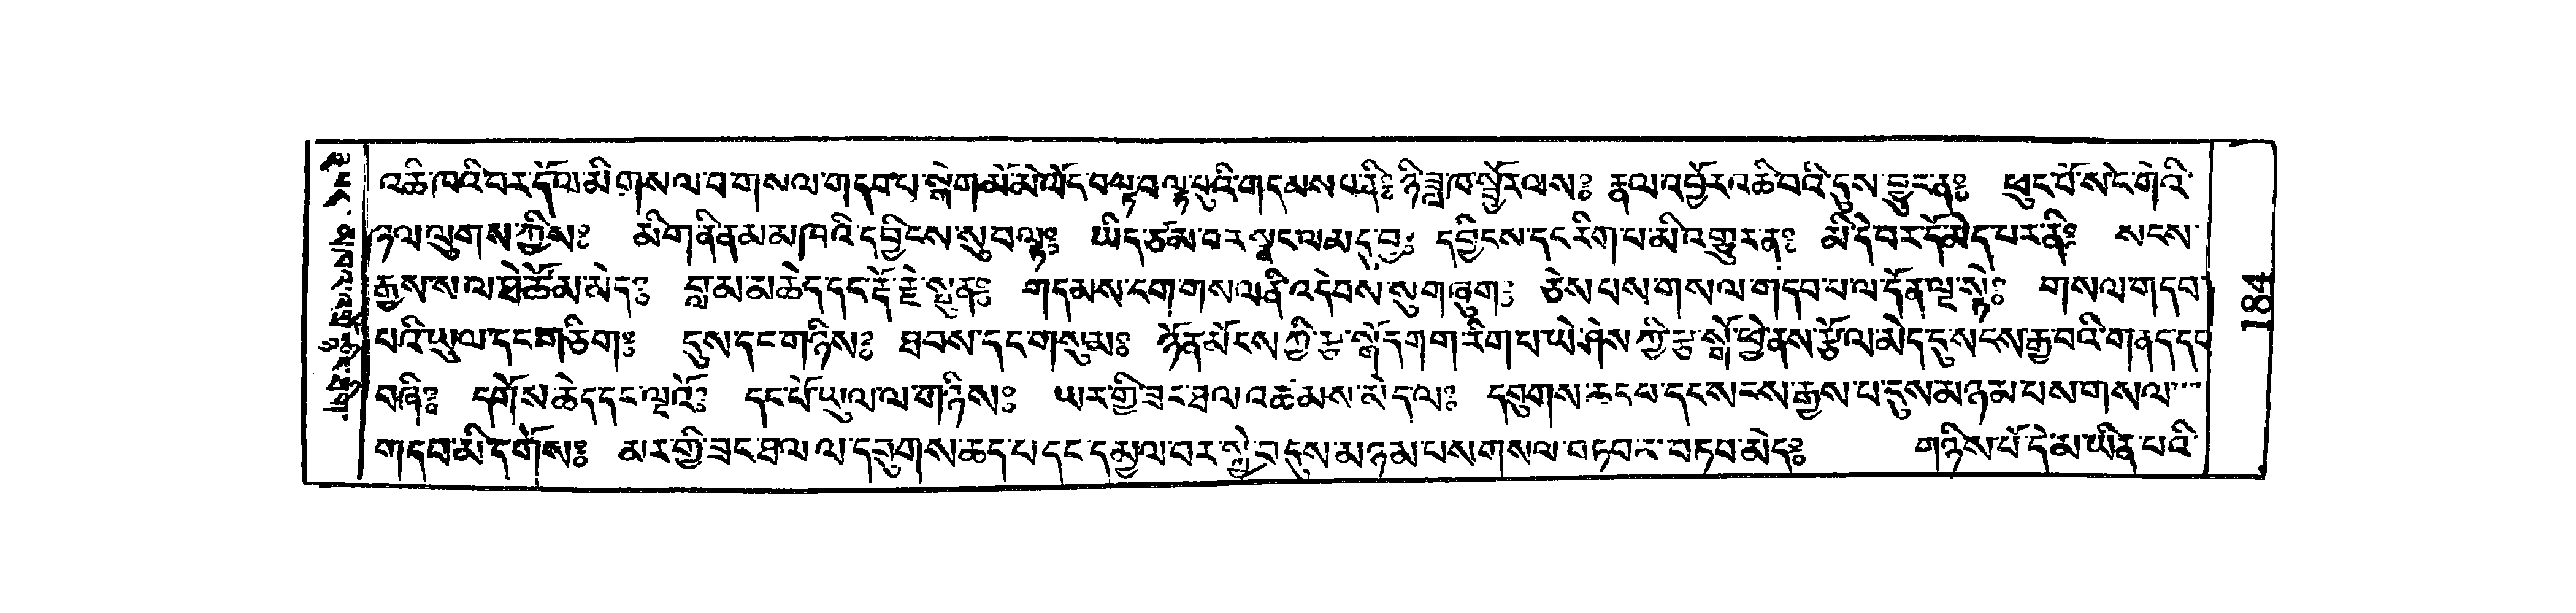 འཆི་ཁའི་བར་དོ་ལ་མི་གསལ་བ་གསལ་གདབ་པ་སྒེག་མོ་མེ་ལོང་བལྟ་བ་ལྟ་བུའི་གདམས་པ་ནི༔ ཉི་ཟླ་ཁ་སྦྱོར་ལས༔ རྣལ་འབྱོར་འཆི་བའི་དུས་བྱུང་ན༔ ཕུང་པོ་སེང་གེའི་
ཉལ་ལུགས་ཀྱིས༔ མིག་ནི་ནམ་མཁའི་དབྱིངས་སུ་བལྟ༔ ཡིད་ཙམ་བར་སྣང་ལམ་དུ་བྱ༔ དབྱིངས་དང་རིག་པ་མི་འགྱུར་ན༔ མི་དེ་བར་དོ་མེད་པར་ནི༔ སངས་
རྒྱས་ས་ལ་ཐེ་ཚོམ་མེད༔ བླ་མ་མཆེད་དང་རྡོ་རྗེ་སྤུན༔ གདམས་ངག་གསལ་ནི་འདེབས་སུ་གཞུག༔ ཅེས་པས་གསལ་གདབ་པ་ལ་དོན་ལྔ་སྟེ༔ གསལ་གདབ
པའི་ཡུལ་དང་གཅིག༔ དུས་དང་གཉིས༔ ཐབས་དང་གསུམ༔ ཉོན་མོངས་ཀྱི་རྩ་སྒོ་དགག རིག་པ་ཡེ་ཤེས་ཀྱི་རྩ་སྒོ་ཕྱེ་ནས་རྩོལ་མེད་དུ་སངས་རྒྱ་བའི་གནད་དང
བཞི༔ དགོས་ཆེད་དང་ལྔའོ༔ དང་པོ་ཡུལ་ལ་གཉིས༔ ཡར་གྱི་ཟང་ཐལ་འཆམས་མེད་ལ༔ དབུགས་ཆད་པ་དང་སངས་རྒྱས་པ་དུས་མཉམ་པས་གསལ
གདབ་མི་དགོས༔ མར་གྱི་ཟང་ཐལ་ལ་དབུགས་ཆད་པ་དང་དམྱལ་བར་སྐྱེ་བ་དུས་མཉམ་པས་གསལ་བཏབ་ན་བཏབ་མེད༔ གཉིས་པོ་དེ་མ་ཡིན་པའི་